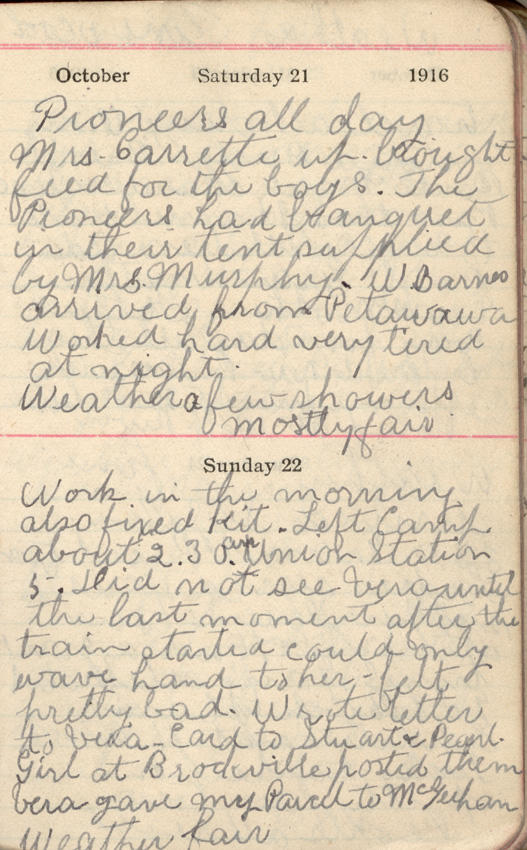 October Saturday 21 1916
Pioneers all day
Mrs. Garrette up. brought
feed for the boys. The
Pioneers had banquet
in their tent supplied
by Mrs. Murphy. W. Barnes
arrived from Petawawa
Worked hard very tired
at night
Weather a few showers
mostly fair.
Sunday 22
Work in the morning
also fixed Kit. Left Camp
about 2.30. Union Station
5. Did not see Vera until
the last moment after the
train started could only
wave hand to her - felt
pretty bad. Wrote letter
to Vera - Card to Stuart & Pearl.
Girl at Brockville posted them
Vera gave my Parcel to McGeehan
Weather fair